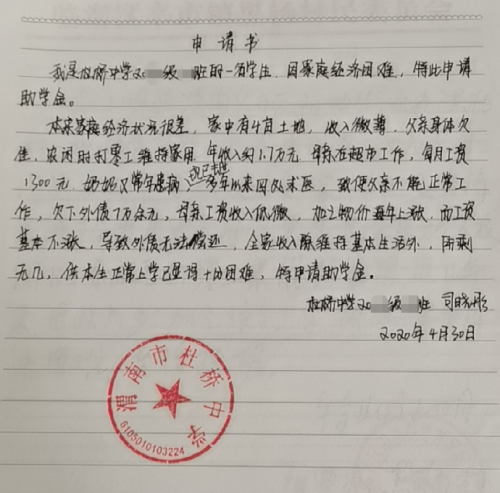 申请书
我是杜桥中学20级班的一名学生，因家庭经济困难，特此申请
助学金。
本来家庭经济状况很差，家中有4亩土地，收入微薄，父亲身体欠
佳，农闲时打零工维持家用，年收入约1.7万元，母亲在超市工作，每月工资
1300元，奶奶又常年患病，多年以来四处求医，致使父亲不能正常工
作，欠下外债7万余元，母亲工资收入低微，加之物价每年上涨，而工资
基本不涨，导致外债无法偿还，全家收入除维持基本生活外，所剩
无几，供本生正常上学已显得十分困难，特申请助学金。
杜桥中学20级班 司晓彤
2020年4月30日
渭南市杜桥中学
6105010103224